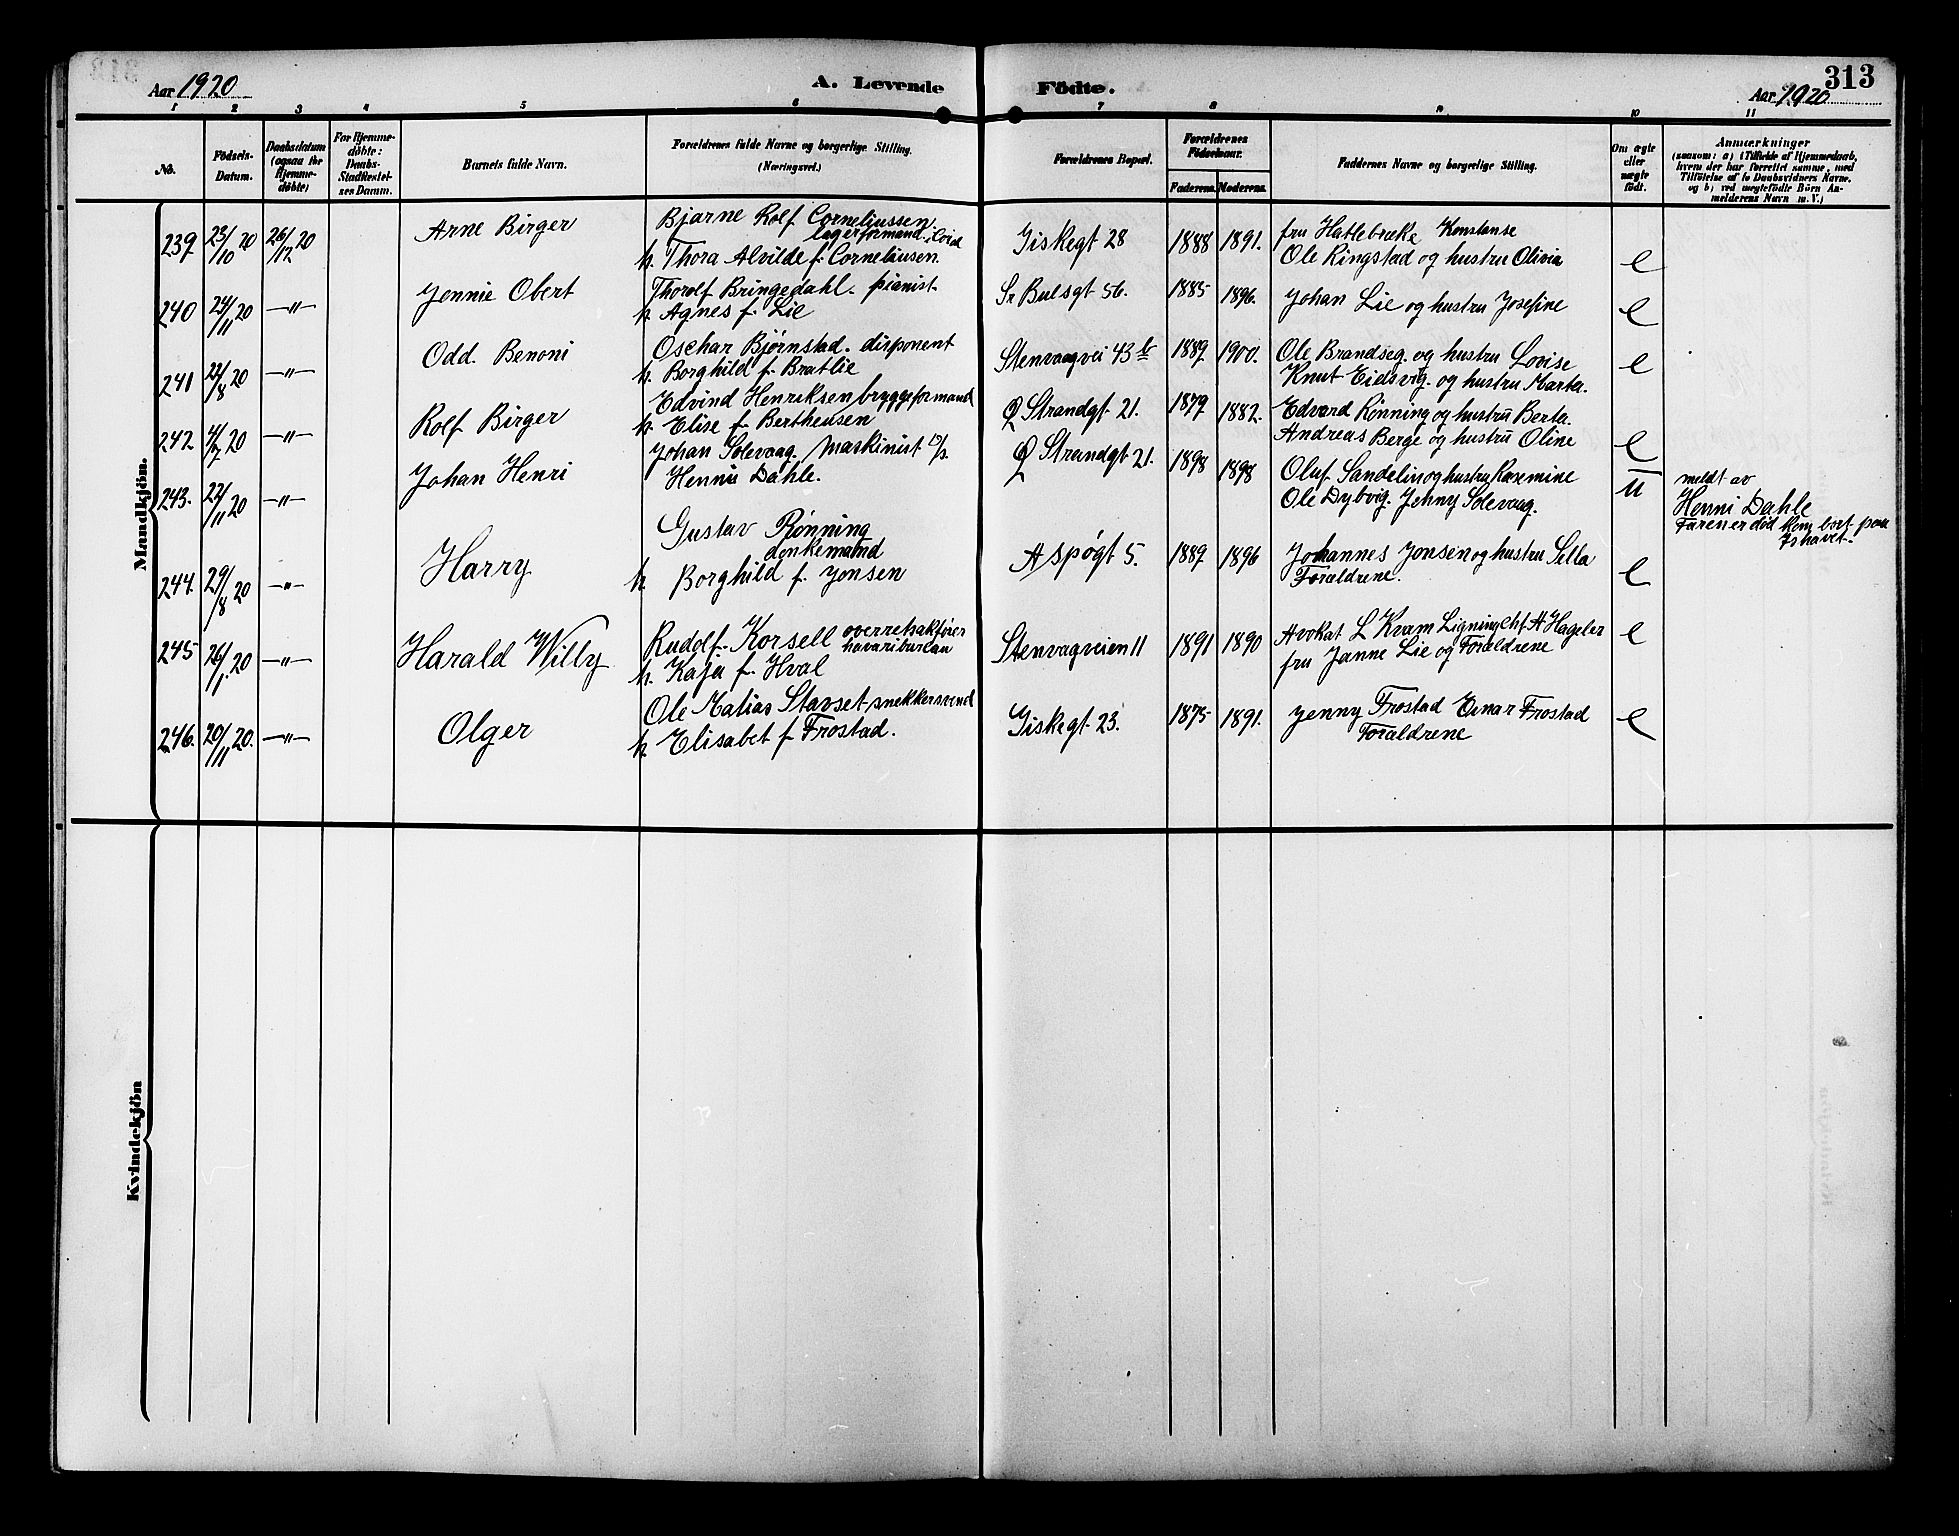 313
Aar 1920
A. Levende Födte.
Aar 1920
1 2 3 4 5 6 7 8 9 10 11
No.
Födsels-Datum.
Daabsdatum (ogsaa for Hjemme-döbte)
For Hjemme-döbte: Daabs-Stadfæstel-ses Datum.
Barnets fulde Navn.
Forældrenes fulde Navne og borgerlige Stilling. (Næringsvei.)
Forældrenes Bopæl.
Forældrenes Födselsaar.
Faderens. Moderens.
Faddernes Navne og borgerlige Stilling.
Om ægte eller uægte født.
Anmærkninger
(saasom: a) i Tilfælde af Hjemmedaab, hvem der har forrettet samme, med Tilföielse af to Daabsvidners Navne, og b) ved uægtefödte Börn An-melderens Navn m. V.)
Mandkjön.
239 23/10 20 26/12 20 Arne Birger
Bjarne Rolf Corneliussen
lagerformand
h. Thora Alvilde f. Corneliusen.
Giskegt 28 1888 1891.
fru Hatlebrække Konstanse
Ole Ringstad og hustru Olivia
e
240 24/11 20 —"— Jennie Obert
Thorolf Bringedahl. pianist.
h Agnes f. Lie
Sr Bulsgt 56. 1885 1896.
Johan Lie og hustru Josefine
e
241 22/8 20 —"— Odd. Benoni
Oschar Bjørnstad. disponent
h. Borghild f. Bratlie
Stenvaagvei 43 b 1889 1900.
Ole Brandseg. og hustru Lovise
Knut Eidsvig. og hustru Marta.
e
242 4/7 20 —"— Rolf Birger
Edvind Henriksen bryggeformand
h. Elise f. Bertheusen
Ø Strandgt 21. 1879 1882.
Edvard Rønning og hustru Berta.
Andreas Berge og hustru Oline
e
243. 22/11 20 —"— Johan Henri
Johan Solevaag. Maskinist
Henni Dahle.
Ø Strandgt 21. 1898 1898
Oluf Sandelin og hustru Rasmine
Ole Dybvig. Jenny Solevaag.
u
meldt av
Henni Dahle
Faren er död kom bort paa
Ishavet.
244. 29/8 20 —"— Harry
Gustav Rønning
donkemand
h Borghild f. Jonsen
Aspøgt 5. 1889 1896
Johannes Jonsen og hustru Silla
Foraldrene.
e
245 26/1. 20 —"— Harald Willy
Rudolf Korsell overretsakfører
havaribureau
h. Kaja f. Hval
Stenvagveien 11 1891 1890
Avokat L Kvam Ligningchf A Hageler
fru Janne Lie og Foraldrene
e
246. 20/11 20. —"— Olger
Ole Matias Stavset snekkersvend
h Elisabet f Frostad.
Giskegt 23. 1875 1891.
Jenny Frostad Einar Frostad
Foraldrene
e
Kvindekjön